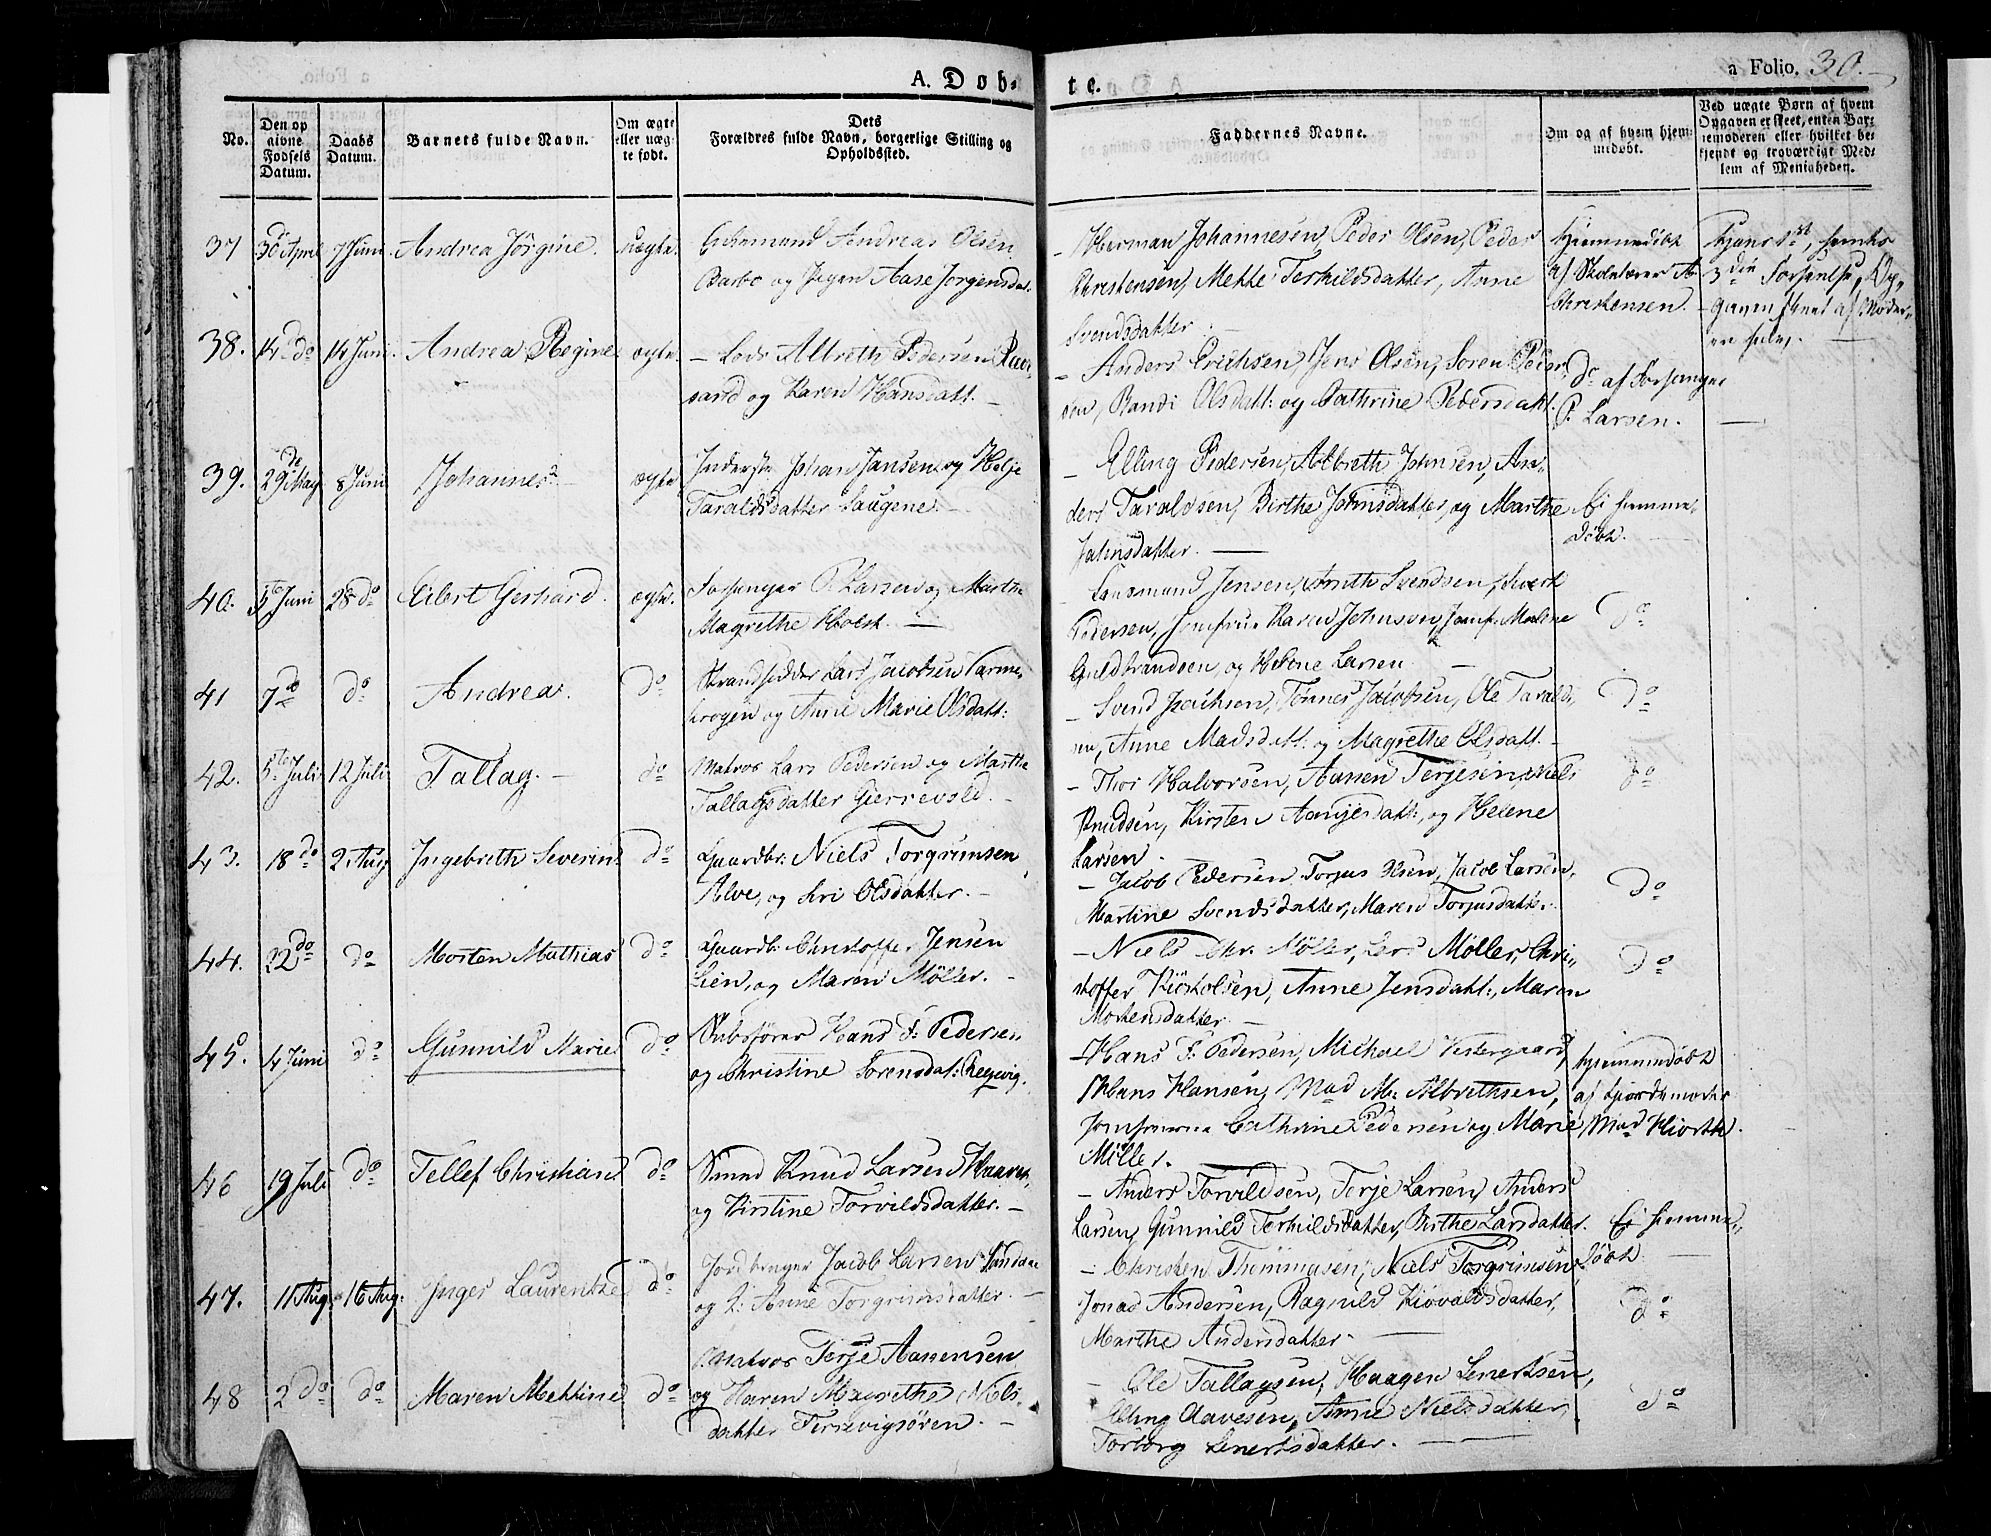 A. Døb-
te.
a Folio. 30.
No.
Den op
givne
Fødsels
Datum.
Daabs
Datum.
Barnets fulde Navn.
Om ægte
eller uæg-
te født.
Dets
Forældres fulde Navn, borgerlige Stilling og
Opholdssted.
Faddernes Navne.
Om og af hvem hjem-
mdøbt.
Ved uægte Børn af hvem
Opgaven er skeet, enten Bar-
nemoderen eller hvilket be-
kjendt og troværdigt Med-
lem af Menigheden.
37 30 April 7 Juni Andrea Jörgine. uægte.
Andreas Olsen
Barbo og Pigen Aase Jörgensdat.
Herman Johannesen, Peder Olsen, Peder
Christensen, Mette Terkildsdatter, Anne
Svendsdatter.
Hjemmedöbt
af Skolelærer A
Christensen.
38. 14 do 14 Juni. Andrea Regine ægte.
Lods Albreth Pedersen
og Karen Hansdatt. —
Anders Erichsen, Jens Olsen, Soren Peder-
sen, Randi Olsdatt: og Cathrine Pedersdatt.
do af Forsanger
P. Larsen.
39. 29 May 8 Juni Johannes ægte
Inderste Johan Jansen og Helje
Taraldsdatter Saugene. —
Elling Pedersen, Albreth Johnsen, An-
ders Taraldsen, Birthe Johnsdatter, og Marthe
Johnsdatter. —
Ei hjemme-
döbt.
40. 5te Juni 28 do Eilert Gerhard. ægte.
Forsanger P. Larsen og Marthe
Magrethe Holst. —
Lensmand Jensen, Anith Svendsen, Sivert
Pedersen, Jomfrue Karen Johnson, Jomf. Malene
Guldbrandsen, og Helene Larsen.
do
41 7 do do Andreas. do
Strandsidder Lars Jacobsen Parme-
krogen og Anne Marie Olsdatt:
Svend Isachsen, Tönnes Jacobsen, Ole Tarald-
sen, Anne Madsdatt: og Magrethe Olsdatt.
do
42. 5te Juli 12 Juli Tallag. — do
Matros Lars Pedersen og Marthe
Tallagsdatter Gierrevold. —
Thor Halvorsen, Aanen Terjesen, Niels
Knudsen, Kirsten Aanjesdatt:, og Helene
Larsen.
do
43. 18 do 2 Aug Ingebreth Severin. do
Gaardbr: Niels Torgrimsen
Alve, og Siri Olsdatter. —
Jacob Pedersen, Torjus Olsen, Jacob Larsen,
Martine Svendsdatter, Maren Torjusdatt.
do
44. 22 do do Morten Mathias do
Gaardb: Christoffer Jensen
Lien, og Maren Möller. —
Niels Chr. Möller, Lars Möller, Chri-
stoffer Kittelsen, Anne Jensdatt:, Maren
Mortensdatter. —
do
45. 4 Juni do Gunnild Marie do
Skibsförer Hans F: Pedersen
og Christine Sorensdat:
Hans F. Pedersen, Michael Vestergaard,
Hans Hansen, Mad M: Albrethsen,
Jomfruerne Cathrine Pedersen og Marie
Möller.
hjemmedöbt
af Gjordemoder
Mad Hiorth.
46 19 Juli do Tellef Christian do
Smed Knud Larsen
og Kirstine Torvildsdatter. —
Anders Torvildsen, Terje Larsen, Anders
Larsen, Gunnild Terkildsdatter, Birthe Larsdatter.
Ei hjemme-
döbt
47. 11 Aug. 16 Aug: Inger Laurentze do
Jordbruger Jacob Larsen
og Anne Torgrimsdatter. —
Christen Thommasen, Niels Torgrimsen,
Jonas Andersen, Ragnild Hovaldsdatter,
Marthe Andersdatter. —
do
48 2 do do Maren Mekkine do
Matros Terje Aanensen
og Karen Magrethe Niels-
datter Terrevigsören. —
Ole Tallagsen, Haagen Lenertsen,
Elling Oavesen, Anne Nielsdatter,
Torborg Lenertsdatter. —
do